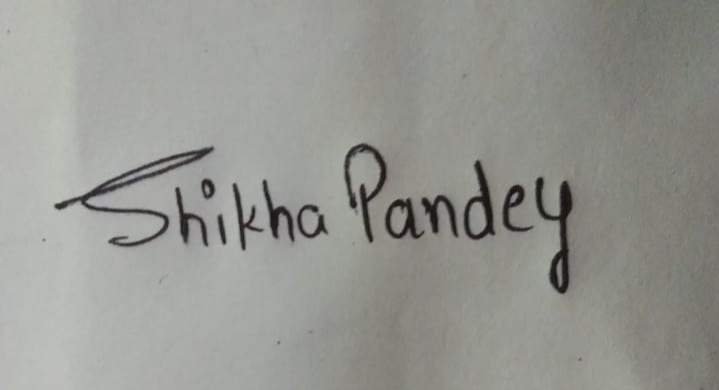 Shikha Pandey